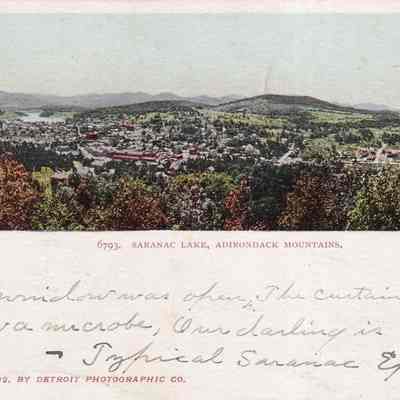 6793. SARANAC LAKE, ADIRONDACK MOUNTAINS.
window was open, The curtain
a microbe, Our darling is
- Typical Saranac Ep
BY DETROIT PHOTOGRAPHIC CO.